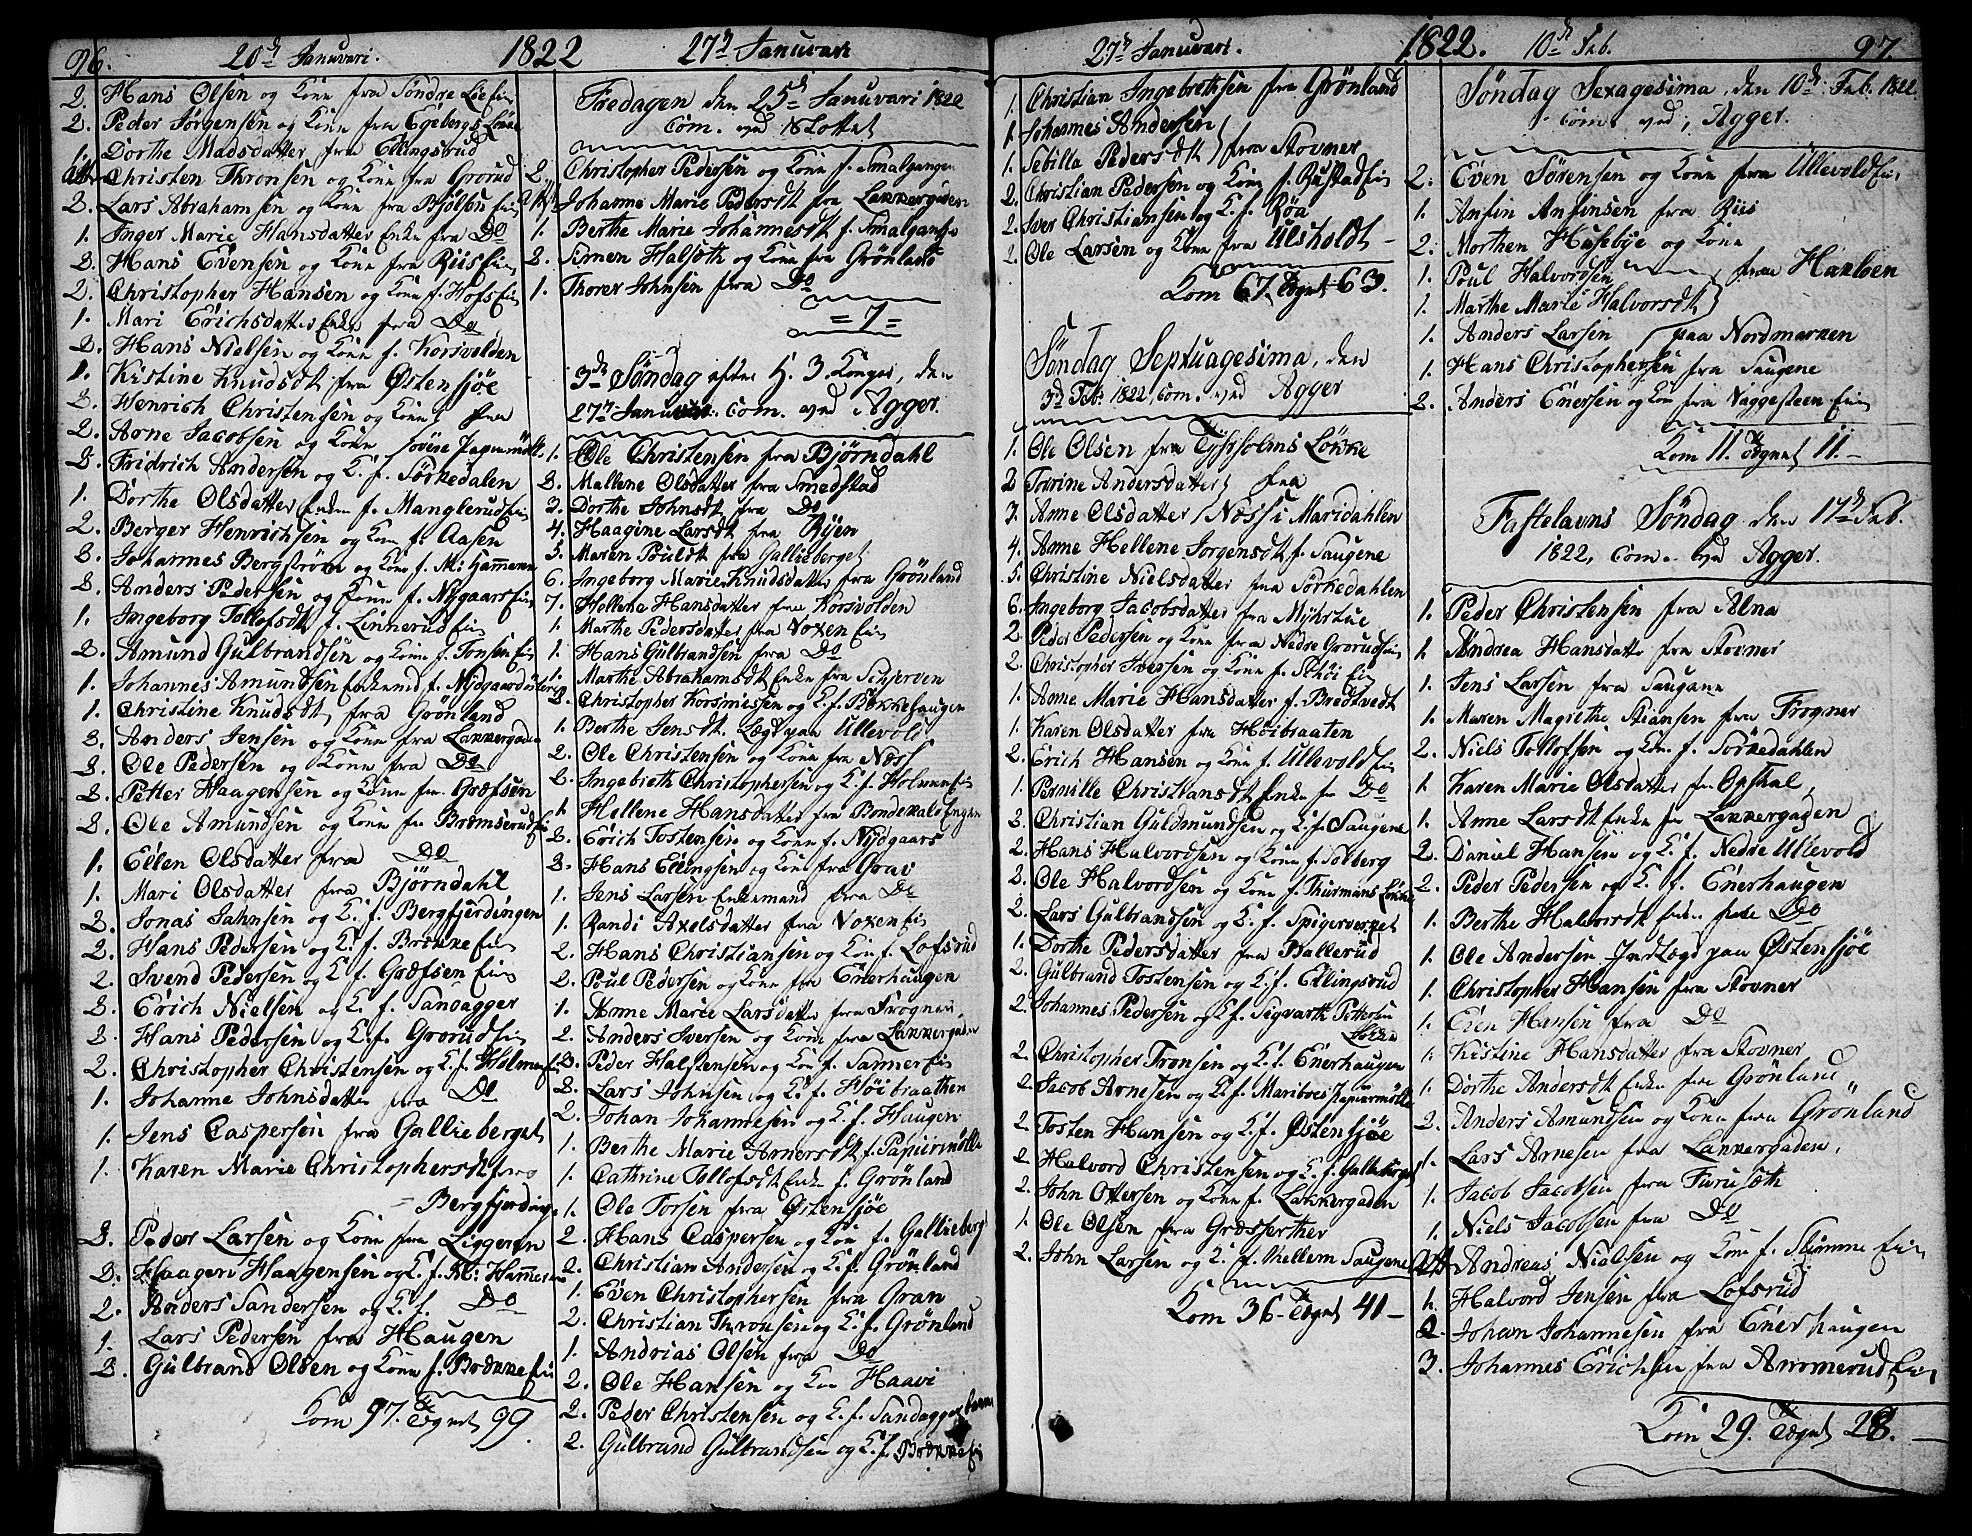 96.
20de Januvari.
1822
27de Januvari
2. Hans Olsen og Kone fra Søndre Løe Ei
2. Peder Jørgensen og Kone fra Egebergs Løkke
1. Dorthe Madsdatter fra Ellingsrud
Christen Thronsen og Kone fra Grorud
2. Lars Abrahamsen og Kone fra Bjølsen Ei
1. Inger Marie Hansdatter Enke fra Do
2. Hans Evensen og Kone fra Riis Ei
2. Christopher Hansen og Kone f. Hofs Ei
1. Mari Erichsdatter Enke fra Do
2. Hans Nielsen og Kone f. Korsvolden
1. Kistine Knudsdt fra Østensjøe
2. Henrich Christensen og Kone fra
2. Arne Jacobsen og Kone Øvere Papermølle
2. Fridrich Andersen og K. f. Sørkedalen
1. Dorthe Olsdatter Enke f. Manglerud Ei
2. Berger Henrichsen og Kone f. Aasen
2. Johannes Bergstrøm og Kone f. M: Hammeren
2. Anders Pedersen og Kone f. Nygaars Ei
1. Ingeborg Tollofsdt f. Linnerud Ei
2. Amund Gulbrandsen og Kone f. Tonsen Ei
1. Johannes Amundsen Enkemd f. Nydgaard
1. Christine Knudsdt fra Grønland
2. Anders Jensen og Kone fra Lakkergaden
2. Ole Pedersen og Kone fra Do
2. Petter Haagensen og Kone fra Græfsen
2. Ole Amundsen og Kone fr. Brømserud Ei
1. Ellen Olsdatter fra Do
1. Mari Olsdatter fra Bjørndahl
2. Jonas Jahnsen og K. f. Bergfjerdingen
2. Hans Pedersen og K. f. Brække Ei
2. Svend Pedersen og K. f. Græfsen Ei
2. Erich Nielsen og K. f. Sandagger
2. Hans Pedersen og K. f. Grorud Ei
2. Christopher Christensen og K. f. Holmen Ei
1. Johanne Johnsdatter fra Do
1. Jens Caspersen fra Gallieberget
1. Karen Marie Christophersdt fra
Bergfjerding
2. Peder Larsen og Kone fra Liggeren
2. Haagen Haagensen og K. f. M: Hammeren
2. Anders Sandersen og K. f. Do
1. Lars Pedersen fra Haugen
2. Gulbrand Olsen og Kone f. Brække Ei
Kom 97. Tegnet 99.
Fredagen den 25de Januvari 1822
Com. ved Slottet
2. Christopher Pedersen og Kone f. Smalgangen
Johanne Marie Pedersdt fra Lakkergaden
1. Berthe Marie Johannesdt f. Smalgangen
2. Simen Halsøth og Kone fra Grønland
1. Thorer Johnsen fra Do
= 7 =
3de Søndag efter H. 3 Konger, den
27de Januvari Com. ved Agger.
1. Ole Christensen fra Bjørndahl
2. Mallene Olsdatter fra Smedstad
3. Dorthe Johnsdt fra Do
4. Haagine Larsdt fra Ryen
5. Maren Poulsdt fra Gallieberget
6. Ingeborg Marie Knudsdatter fra Grønland
7. Hellene Hansdatter fra Korsvolden
1. Marthe Pedersdatter fra Voxen Ei
1. Hans Gulbrandsen fra Do
1. Marthe Abrahamsdt Enke fra
2. Christopher Korsmissen og K. f. Bekkehaugen
1. Berthe Jensdt Lægd paa Ullevold
2. Ole Christensen og Kone fra Næss
2. Ingebreth Christophersen og K. f. Holmen Ei
1. Hellene Hansdatter fra Bondekald Engen
2. Erich Tostensen og Kone f. Nydgaars
2. Hans Ellingsen og Kone fra Grav
1. Jens Larsen Enkemand fra Do
1. Randi Axelsdatter fra Voxen Ei
2. Hans Christiansen og Kone f. Lofsrud
2. Poul Pedersen og Kone fra Enerhaugen
1. Anne Marie Larsdatter fra Frogner.
2. Anders Iversen og Kone fra Lakkergaden
2. Peder Halstensen og Kone f. Sanner Ei
2. Lars Johnsen og K. f. Høibraathen
2. Johan Johannesen og K. f. Haugen
1. Berthe Marie Arnersdt f. Papiirmølle
1. Cathrine Tollofsdt Enke f. Grønland
1. Ole Torsen fra Østensjøe
2. Hans Caspersen og Kone f. Gallieberget
2. Christian Andersen og K. f. Grønland
1. Even Christophersen fra Gran
2. Christian Thronsen og K. f. Grønland
1. Andrias Olsen fra Do
2. Ole Hansen og Kone Haavi
2. Peder Christensen og K. f. Sandagger
2. Gulbrand Gulbrandsen og K. f. Brække Ei
27de Januvari.
1822.
10de Feb.
97.
1. Christian Ingebrethsen fra Grønland
1. Johannes Andersen
1. Sebilla Pedersdt fra Stovner
2. Christian Pedersen og Kone f. Rustad Ei
2. Iver Christiansen og K. f. Røa
2. Ole Larsen og Kone fra Ulsholdt
Kom 67. Tegnet 63.
Søndag Septuagesima, den
3de Feb: 1822, Com. ved Agger
1. Ole Olsen fra Tyskholms Løkke
2 Torine Andersdatter fra
3. Anne Olsdatter Næss i Maridahlen
4. Anne Hellene Jorgensdt f. Saugene
5. Christine Nielsdatter fra Sørkedahlen
6. Ingeborg Jacobsdatter fra Myhrstue
2. Peder Pedersen og Kone fra Nedre Grorud Ei
2. Christopher Iversen og Kone f. Skøi Ei
1. Anne Marie Hansdatter f. Bredtvedt
1. Karen Olsdatter fra Høibraaten
2. Erich Hansen og Kone f. Ullevold Ei
1. Pernille Christiansdt Enke fr Do
2. Christian Guldmundsen og K. f. Saugene
2. Hans Halvordsen og Kone f. Solberg
2. Ole Halvordsen og Kone f. Thurmans Løkke
2. Lars Gulbrandsen og K. f. Spigerverket
1. Dorthe Pedersdatter fra Ballerud
2. Gulbrand Tostensen og K. f. Ellingsrud
2. Johannes Pedersen og K. f. Sigvarth Petterson
Løkke
2. Christopher Tronsen og K. f. Enerhaugen
2. Jacob Arnesen og K. f. Mariboes Papiermølle
2. Tosten Hansen og K. f. Østensjøe
2. Halvord Christensen og K. f. Gallieberget
2. John Ottersen og Kone f. Lakkergaden
1. Ole Olsen fra Græsserther
2. John Larsen og K. f. Mellem Saugene
Kom 36 - Tegnet 41 -
Søndag Sexagesima, den 10de Feb. 1822.
Com. ved, Agger.
2. Even Sørensen og Kone fra Ullevold Ei
1. Anfin Anfinsen fra Riis
2. Morthen Husebye og Kone
1. Poul Halvordsen fra Hakloen
1. Marthe Marie Halvorsdt
1. Anders Larsen paa Nordmarken
1. Hans Christophersen fra Saugene
2. Anders Enersen og Kone fra Vaggesteen Ei
Kom 11. Tegnet 11. -
Fastelavns Søndag den 17de Feb.
1822, Com. ved Agger.
1. Peder Christensen fra Alna
1. Andrea Hansdatter fra Stovner
1. Jens Larsen fra Saugene
1. Maren Magrethe Steansen fra Frogner
2. Niels Tollofsen og Kone f. Sørkedahlen
1. Karen Marie Olsdatter fra Opshal,
1. Anne Larsdt Enke fra Lakkergaden
2. Daniel Hansen og K. f. Nedre Ullevold
2. Peder Pedersen og K. f. Enerhaugen
1. Berthe Halvorsdt Enke fra Do
1. Ole Andersen Indlagd paa Østensjøe
1. Christopher Hansen fra Stovner
1. Elen Hansen fra Do
1. Kistine Hansdatter fra Stovner
1. Dorthe Andersdt Enke fra Grønland
2. Anders Amundsen og Kone fra Grønland
1. Lars Arnesen fra Lakkergaden,
1. Jacob Jacobsen fra Furusæth
1. Niels Jacobsen fra Do
Andreas Nielsen og Kone f. Slimme Ei
1. Halvord Jensen fra Lofsrud
2. Johan Johannesen fra Enerhaugen
3. Johannes Erichsen fra Ammerud Ei
Kom 29. Tegnet 28.